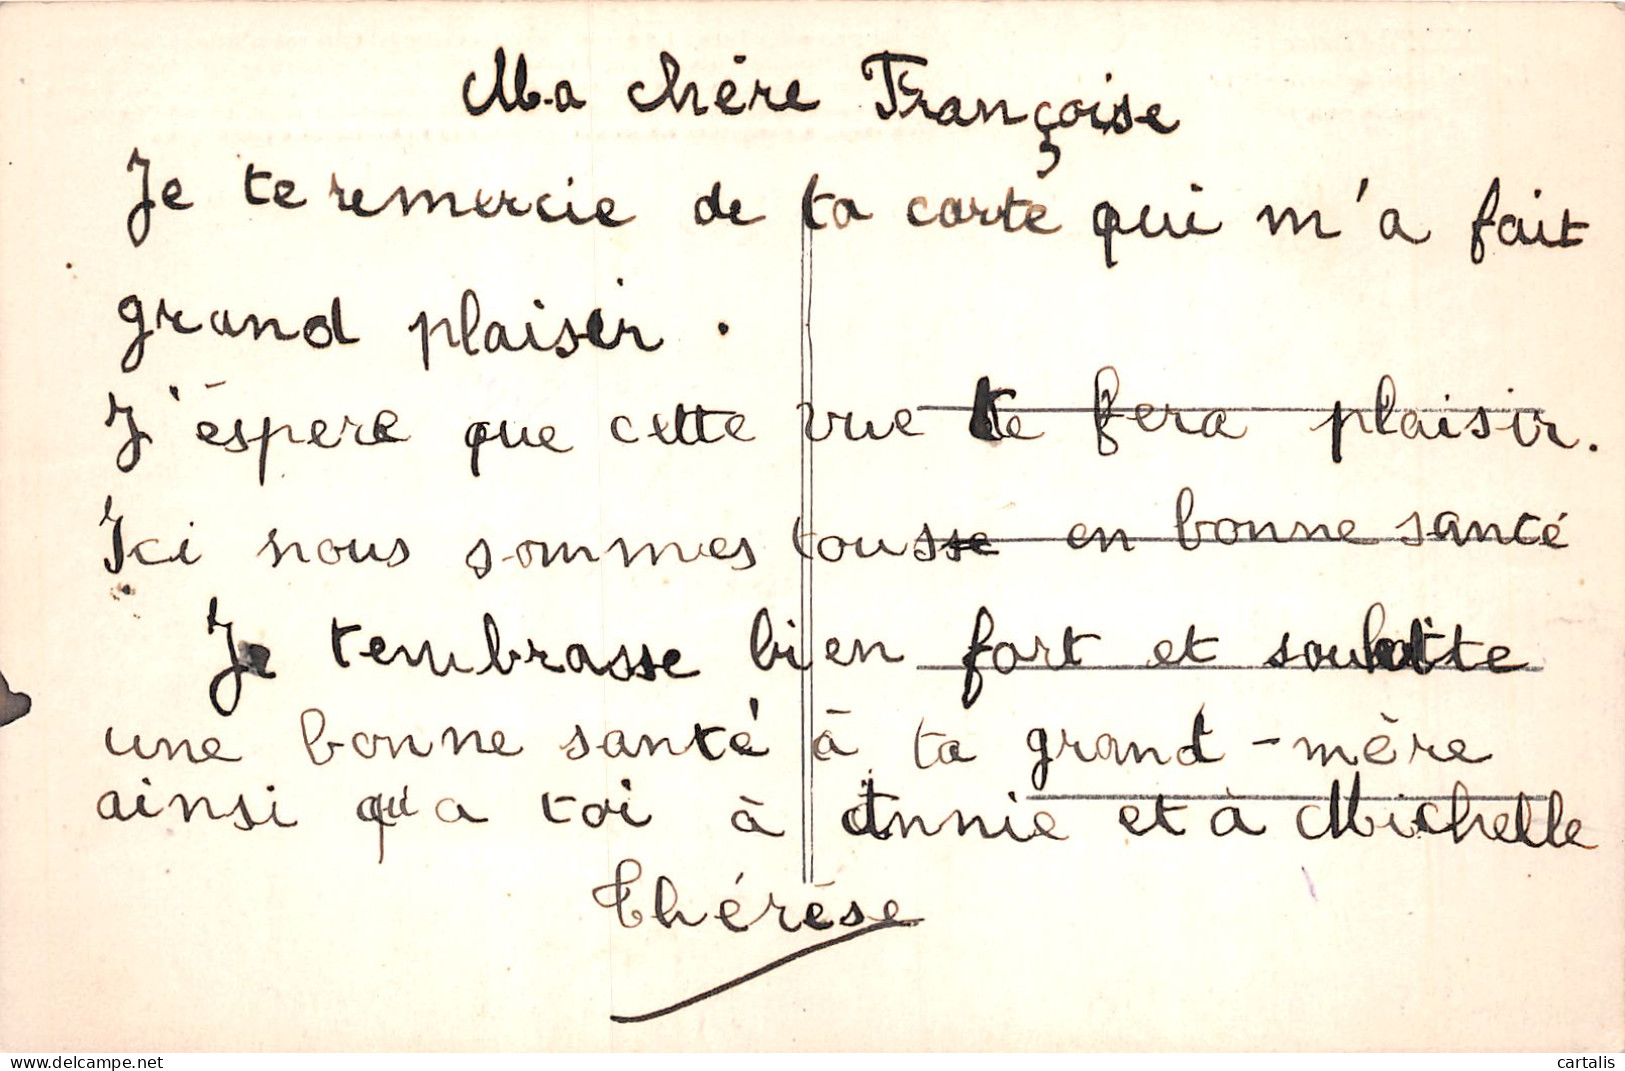 Ma chère Françoise
Je te remercie de ta carte qui m'a fait
grand plaisir.
J'éspere que cette vue te fera plaisir.
Ici nous sommes tous en bonne santé
Je tembrasse bien fort et souhaitte
une bonne santé à ta grand-mère
ainsi qu'a toi à Annie et à Michelle
Thérèse
delcampe.net
cartalis